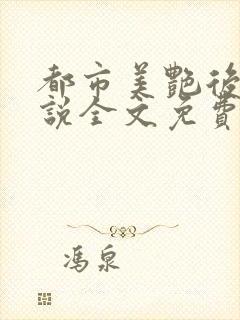 都市美艷後
說全文免費
馮泉